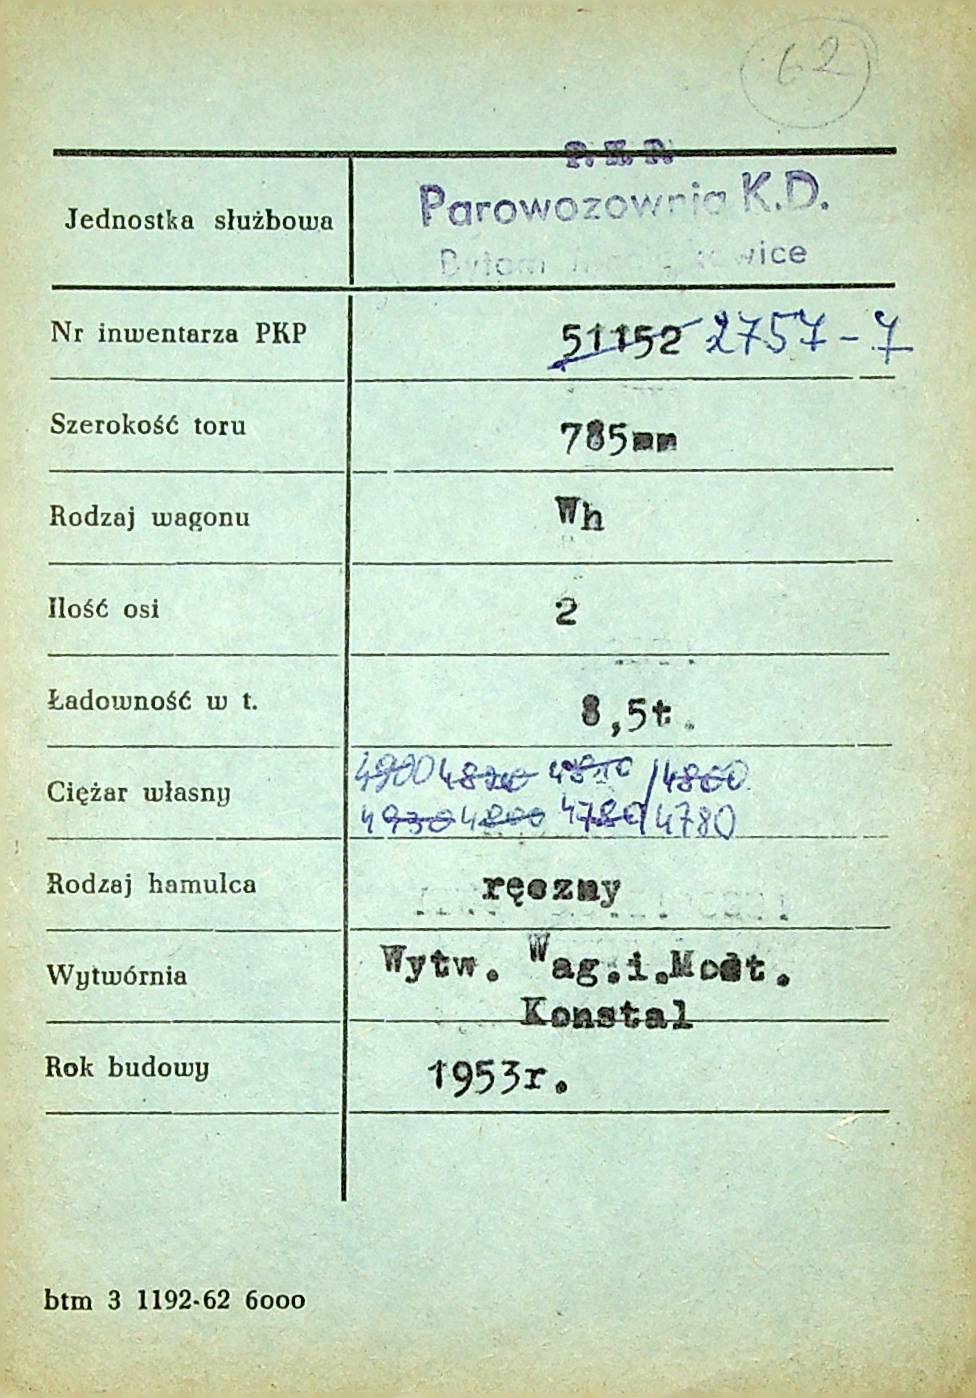 62
P. K. P.
Jednostka służbowa Parowozownia K.D.
Bytom
Nr inwentarza PKP 51152 2757-7
Szerokość toru 785mm
Rodzaj wagonu Wh
Ilość osi 2
Ładowność w t. 8,5t.
4900 4820 4810 / 4860
Ciężar własny
4930 4800 4780 / 4780
Rodzaj hamulca ręczny
Wytwórnia Wytw. Wag.i.Most.
Konstal
Rok budowy 1953r.
btm 3 1192-62 6000